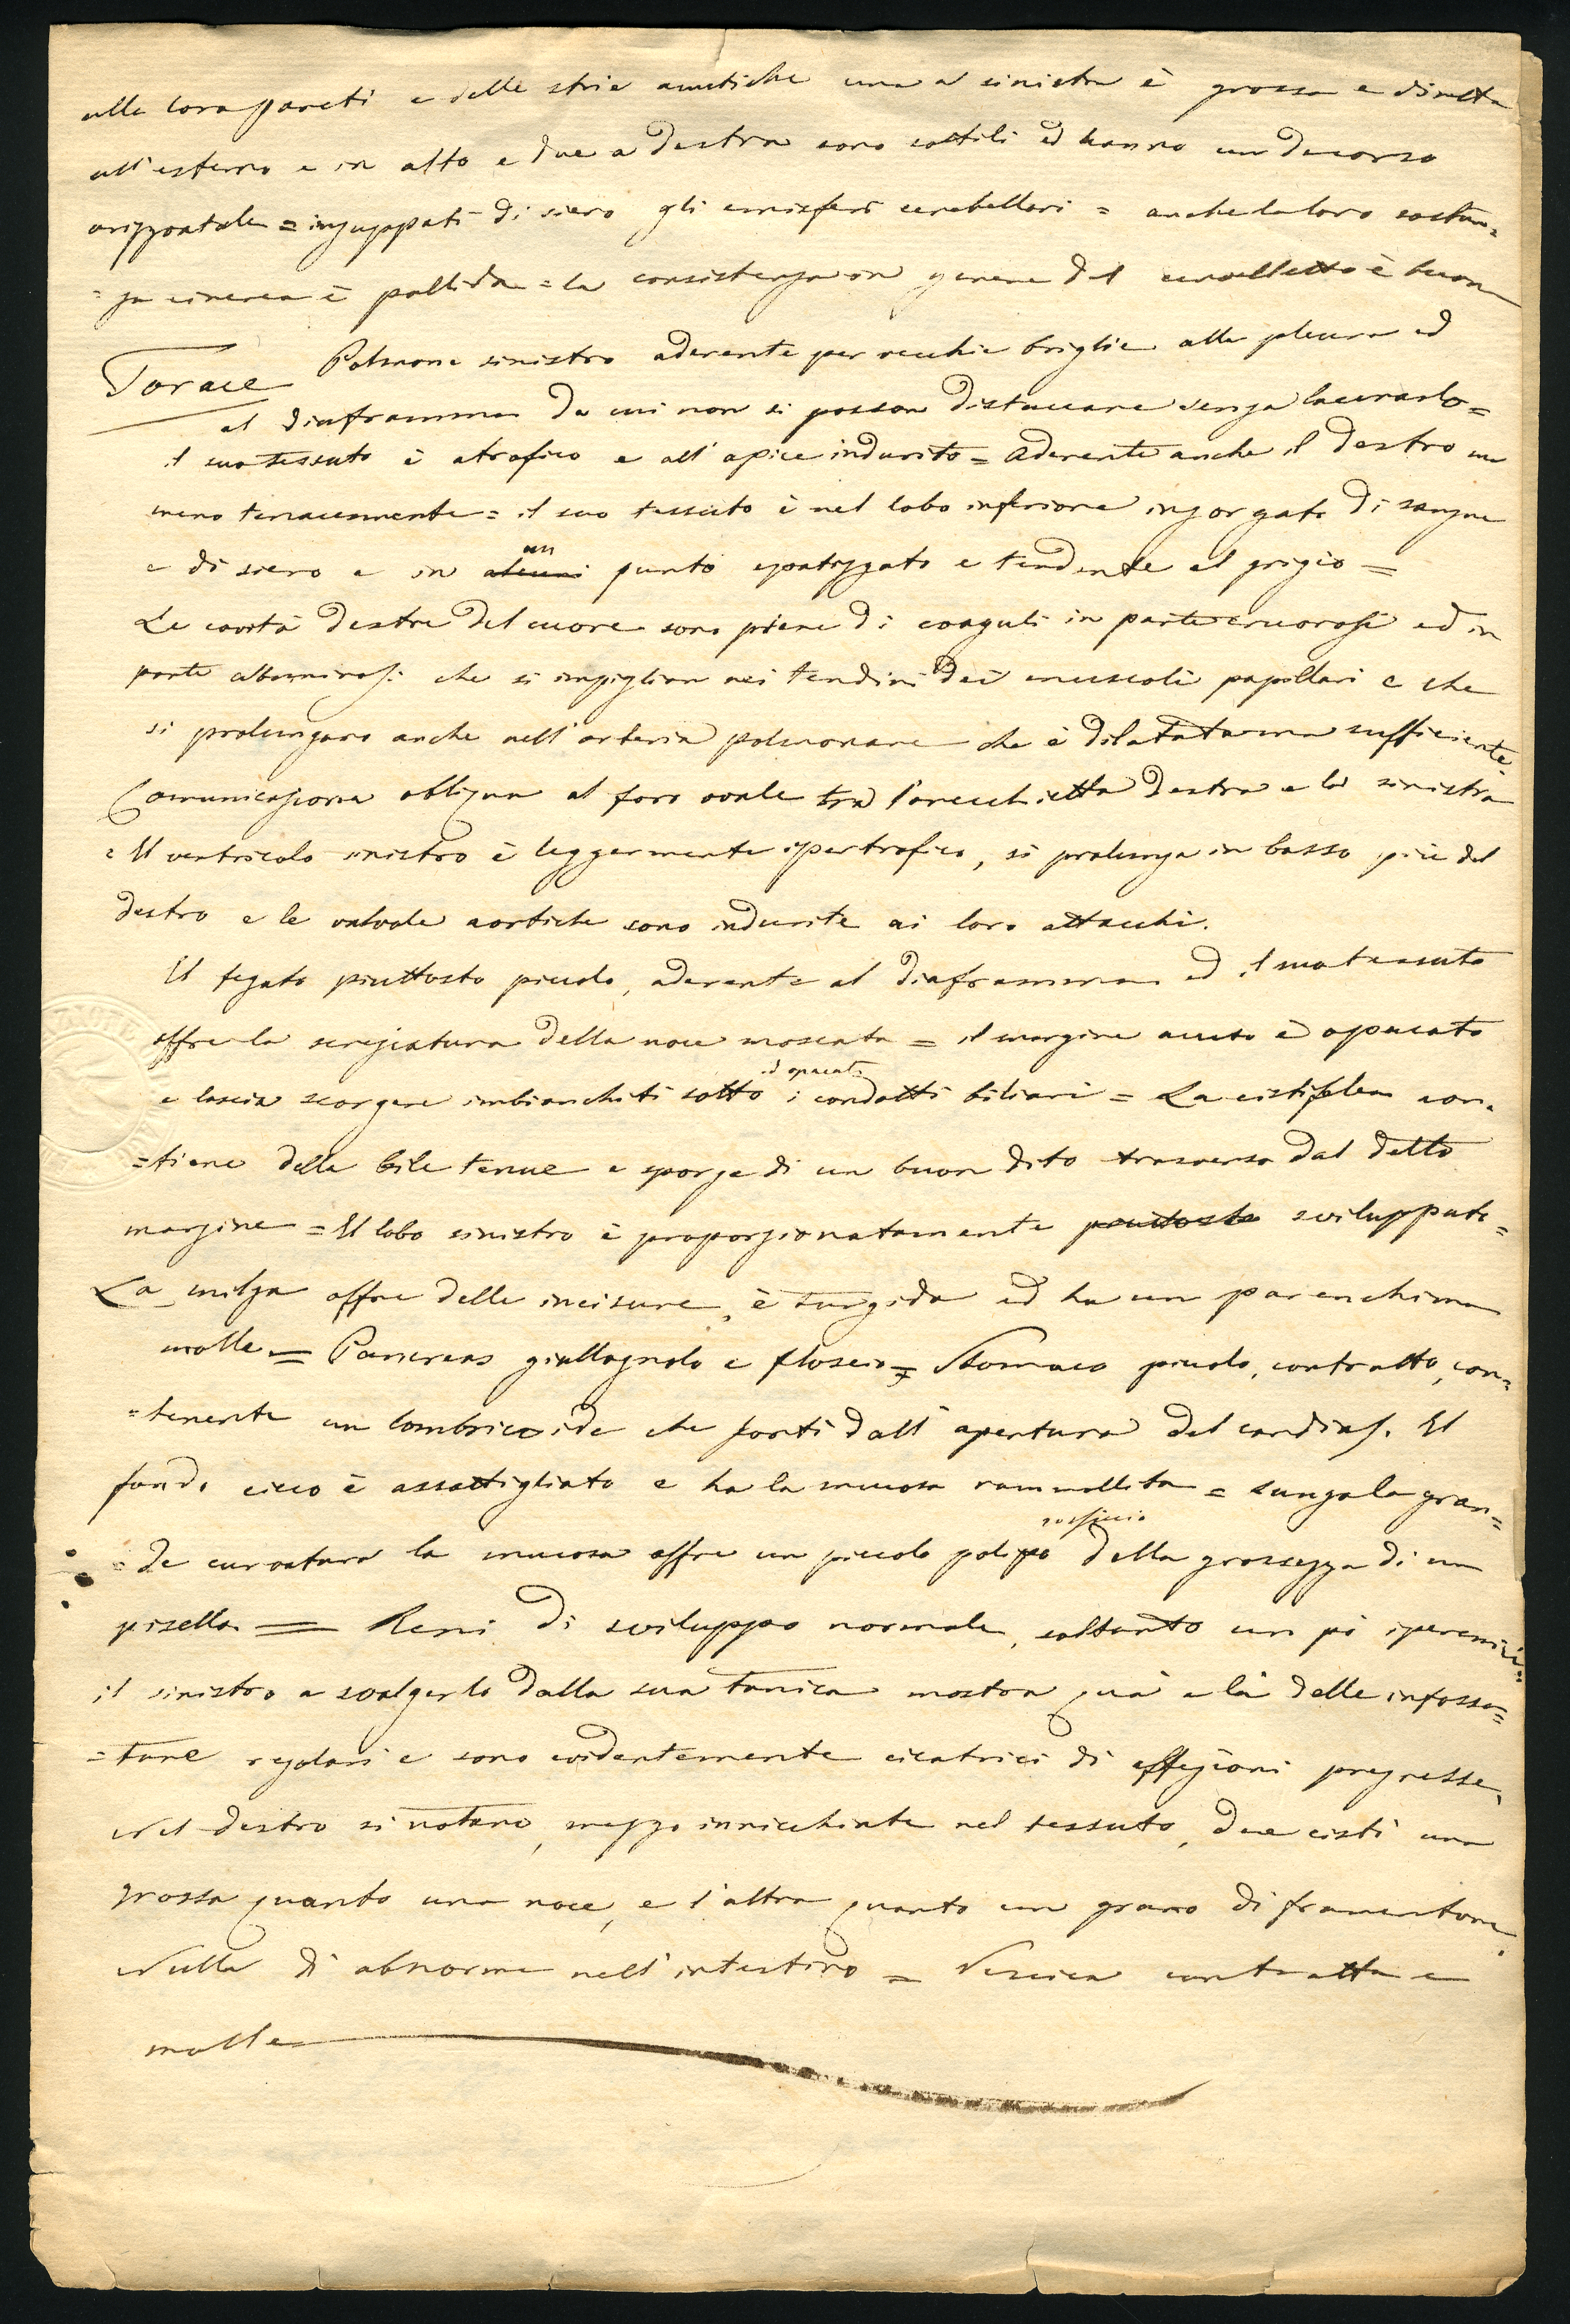 alle loro pareti e delle strie acustiche una a sinistra è grossa e diretta
all'esterno e in alto e due a destra sono sottili ed hanno un decorso
orizzontale = inzuppati di siero gli emisferi cerebellari = anche la loro sostan=
=za cinerea è pallida = la consistenza in genere del cervelletto è buona
Torace Polmone sinistro aderente per vecchie briglie alla pleura ed
al diaframma da cui non si posson distaccare senza lacerarlo =
il suo tessuto è atrofico e all'apice indurito = Aderente anche il destro ma
meno tenacemente = il suo tessuto è nel lobo inferiore ingorgato di sangue
e di siero e in alcuni un punto epatizzato e tendente al grigio =
Le cavità destre del cuore sono piene di coaguli in parte cruorosi ed in
parte albuminosi che si impiglian nei tendini dei muscoli papillari e che
si prolungano anche nell'arteria polmonare che è dilatata ma sufficiente.
Comunicazione obliqua al foro ovale tra l'orecchietta destra e la sinistra
= Il ventricolo sinistro è leggermente ipertrofico, si prolunga in basso più del
destro e le valvole aortiche sono indurite ai loro attacchi.
Il fegato piuttosto piccolo, aderente al diaframma ed il suo tessuto
offre la screziatura della noce moscata = il margine acuto è opacato
e lascia scorgere imbianchiti sotto ed opacati i condotti biliari = La cistifelea con=
=tiene della bile tenue e sporge di un buon dito trasverso dal detto
margine = Il lobo sinistro è proporzionatamente piuttosto sviluppato =
La milza offre delle incisure, è turgida ed ha un parenchima
molle = Pancreas giallognolo e floscio = Stomaco piccolo, contratto, con=
=tenente un lombricoide che sortì dall'apertura del cardias. Il
fondo cieco è assottigliato e ha la mucosa rammollita = Lungo la gran=
=de curvatura la mucosa offre un piccolo polipo rossiccio della grossezza di un
pisello = Reni di sviluppo normale, soltanto un pò iperemici:
il sinistro a svolgerlo dalla sua tonica mostra quà e là delle infossa=
=ture regolari e sono evidentemente cicatrici di affezioni pregresse,
Nel destro si notano, mezzo innicchiate nel tessuto, due cisti una
grossa quanto una noce, e l'altra quanto un grano di frumentone.
Nulla di abnorme nell'intestino = Vescica contratta e
molle